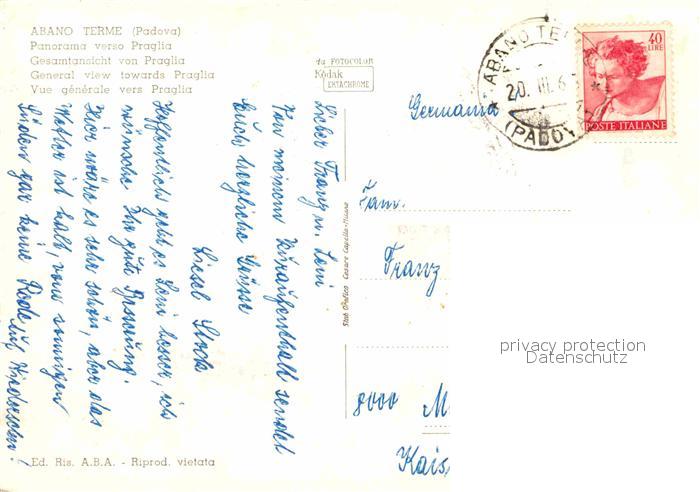 ABANO TERME (Padova)
Panorama verso Praglia
Gesamtansicht von Praglia
General view towards Praglia
Vue générale vers Praglia
da FOTOCOLOR
Kodak
EKTACHROME
ABANO TE
20. III. 6
(PADOV
40
LIRE
POSTE ITALIANE
Germania
Fam.
Franz
8000 M
Kais
Stab. Grafico Cesare Capello - Milano
Lieber Franz u. Leni
Von meinem Kuraufenthalt sendet
Euch herzliche Grüsse
Liesel Stock
Hoffentlich geht es Leni besser, ich
wünsche Ihr gute Besserung.
Hier wäre es sehr schön, aber das
Wetter ist kalt, vom sonnigen
Süden gar keine Rede. Auf Wiedersehen!
Ed. Ris. A.B.A. - Riprod. vietata
privacy protection
Datenschutz